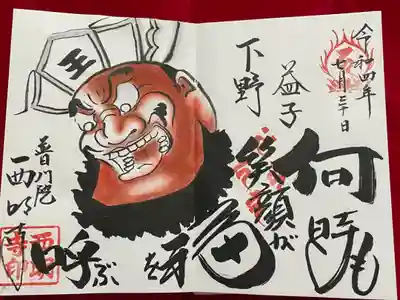 令和四年
七月三十日
何時も
下野
益子
笑顔が
福を呼ぶ
王
普門院
西明寺
西明寺印